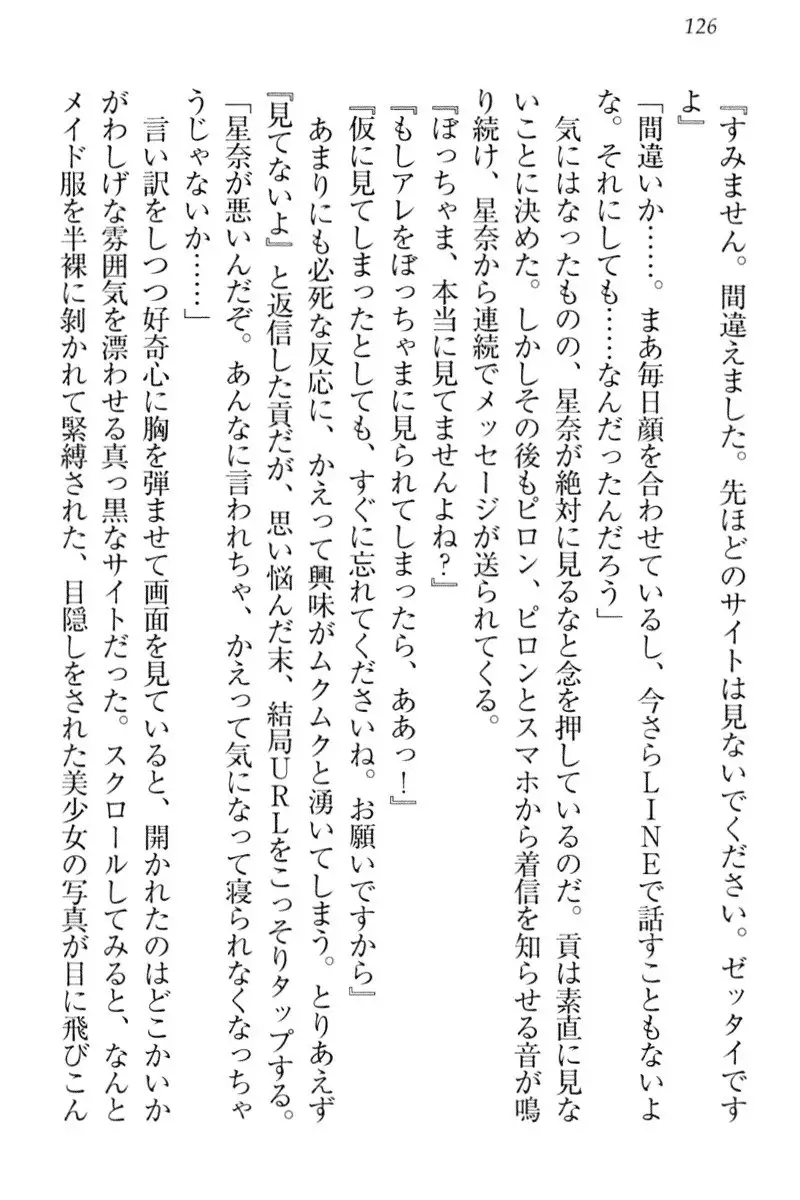 126
『すみません。間違えました。先ほどのサイトは見ないでください。ゼッタイです
よ』
「間違いか……。まあ毎日顔を合わせているし、今さらLINEで話すこともないよ
な。それにしても……なんだったんだろう」
　気にはなったものの、星奈が絶対に見るなと念を押しているのだ。貢は素直に見な
いことに決めた。しかしその後もピロン、ピロンとスマホから着信を知らせる音が鳴
り続け、星奈から連続でメッセージが送られてくる。
『ぼっちゃま、本当に見てませんよね？』
『もしアレをぼっちゃまに見られてしまったら、ああっ！』
『仮に見てしまったとしても、すぐに忘れてくださいね。お願いですから』
　あまりにも必死な反応に、かえって興味がムクムクと湧いてしまう。とりあえず
『見てないよ』と返信した貢だが、思い悩んだ末、結局URLをこっそりタップする。
「星奈が悪いんだぞ。あんなに言われちゃ、かえって気になって寝られなくなっちゃ
うじゃないか……」
　言い訳をしつつ好奇心に胸を弾ませて画面を見ていると、開かれたのはどこかいか
がわしげな雰囲気を漂わせる真っ黒なサイトだった。スクロールしてみると、なんと
メイド服を半裸に剝かれて緊縛された、目隠しをされた美少女の写真が目に飛びこん